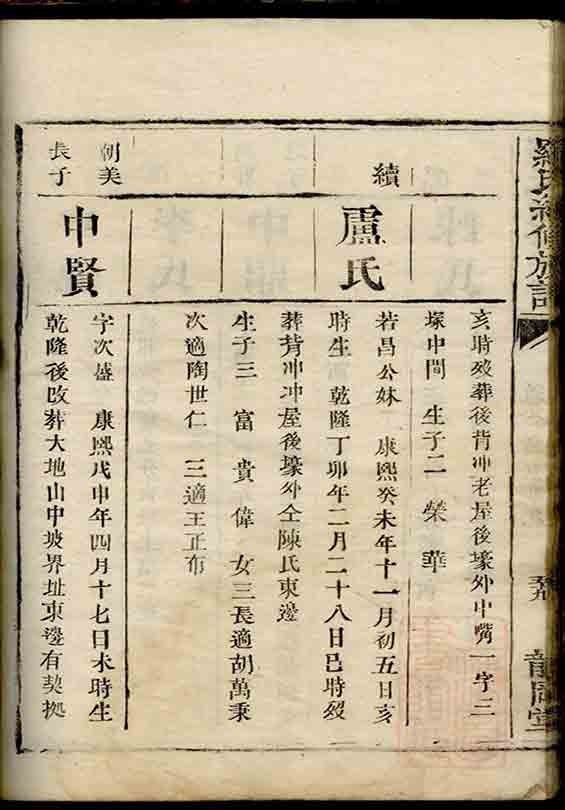 羅氏續修族譜
龍門堂
亥時歿葬後背冲老屋後壕外中嘴一字三
塚中間 生子二 榮 華
續
盧氏
若昌公妹 康熙癸未年十一月初五日亥
時生 乾隆丁卯年二月二十八日巳時歿
葬背冲冲屋後壕外仝陳氏東邊
生子三 富 貴 偉 女三長適胡萬秉
次適陶世仁 三適王正布
朝美
長子
中賢
字次盛 康熙戊申年四月十七日未時生
乾隆後改葬大地山中坡界址東邊有契拠